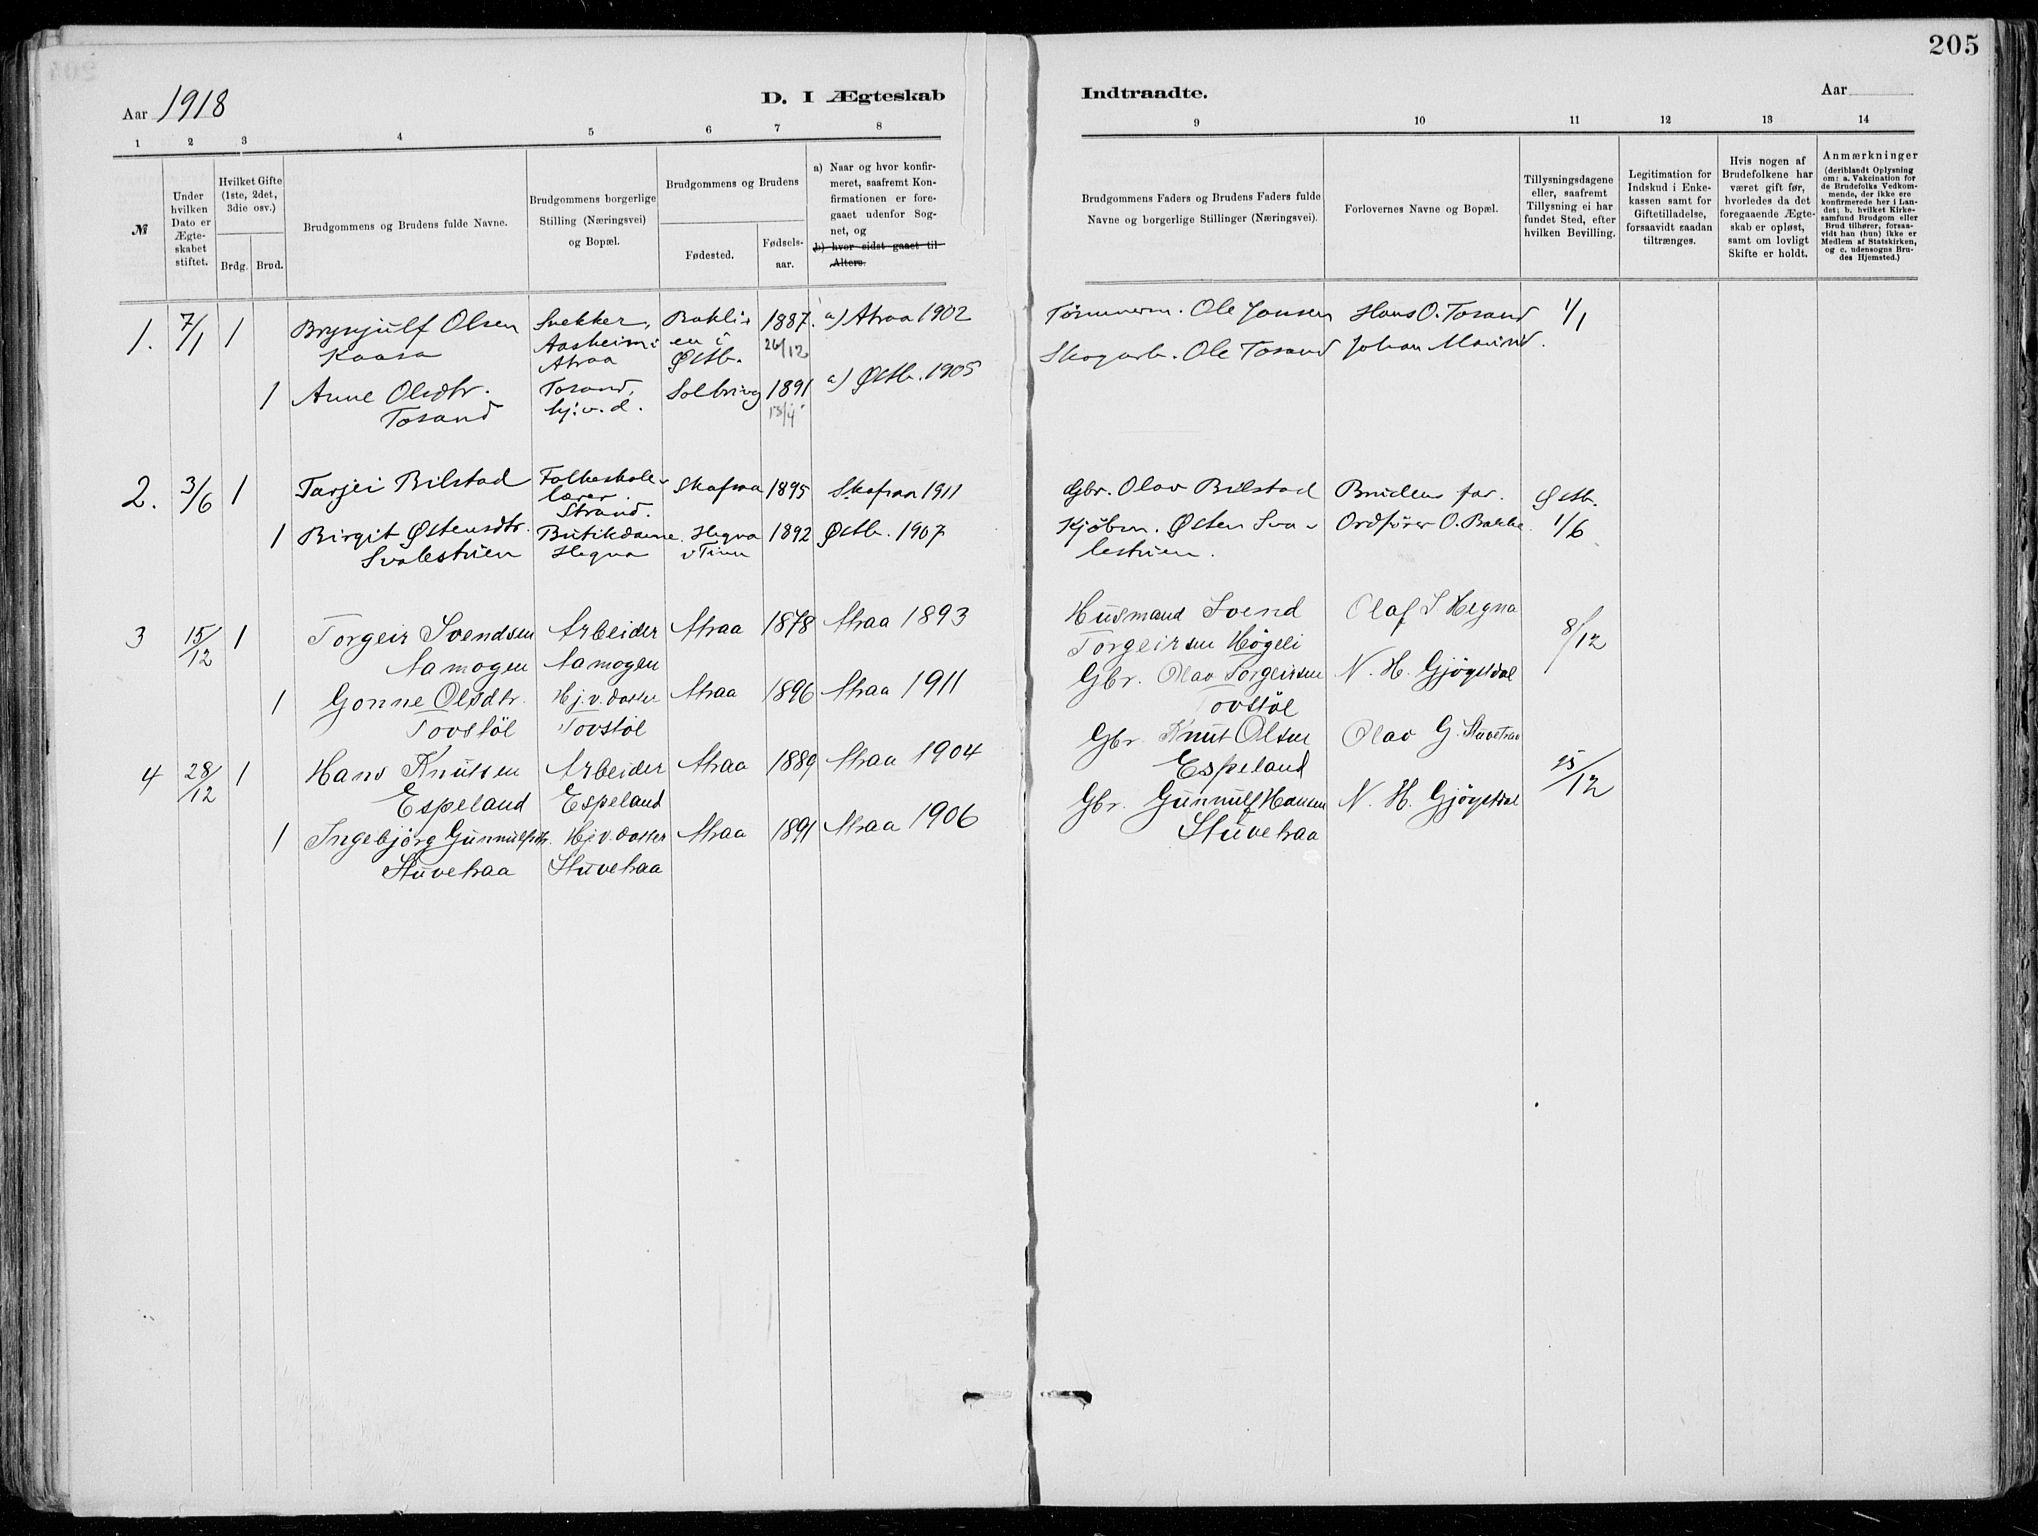 205
Aar 1918
D. I Ægteskab
Indtraadte.
Aar
1 2 3 4 5 6 7 8
9 10 11 12 13 14
№
Under
hvilken
Dato er
Ægte-
skabet
stiftet.
Hvilket Gifte
(1ste, 2det,
3die osv.)
Brdg. Brud.
Brudgommens og Brudens fulde Navne.
Brudgommens borgerlige
Stilling (Næringsvei)
og Bopæl.
Brudgommens og Brudens
Fødested.
Fødsels-
aar.
a) Naar og hvor konfir-
meret, saafremt Kon-
firmationen er fore-
gaaet udenfor Sog-
net, og
b) hvor sidst gaaet til
Alters.
Brudgommens Faders og Brudens Faders fulde
Navne og borgerlige Stillinger (Næringsvei).
Forlovernes Navne og Bopæl.
Tillysningsdagene
eller, saafremt
Tillysning ei har
fundet Sted, efter
hvilken Bevilling.
Legitimation for
Indskud i Enke-
kassen samt for
Giftetilladelse,
forsaavidt saadan
tiltrænges.
Hvis nogen af
Brudefolkene har
været gift før,
hvorledes da det
foregaaende Ægte-
skab er opløst,
samt om lovligt
Skifte er holdt.
Anmærkninger
(deriblandt Oplysning
om: a. Vakcination for
de Brudefolks Vedkom-
mende, der ikke ere
konfirmerede her i Lan-
det; b. hvilket Kirke-
samfund Brudgom eller
Brud tilhører, forsaa-
vidt han (hun) ikke er
Medlem af Statskirken,
og c. udensogns Bru-
des Hjemsted.)
1. 7/1 1 Brynjulf Olsen Snekker, Baklie 1887. a) Atraa 1902 Tømmerm. Ole Jonsen Hans O. Tosand 1/1
Kaasa Aasheim i en i 26/12
Atraa Østb. Skogarb. Ole Tosand Johan
1 Anne Olsdtr. Tosand, Solbrivg 1891 a) Østb. 1905
Tosand hj.v.d. 13/4
2. 3/6 1 Tarjei Bilstad Folkeskole- Skafsaa 1895 Skafsaa 1911 Gbr. Olav Bilstad Brudens far. Østb.
lærer
Strand.
1 Birgit Østensdtr. Butikdame Hegna 1892 Østb. 1907 Kjøbm. Østen Sva- Ordfører O. Bakke 1/6
Svalestuen Hegna i Tinn lestuen.
3 15/12 1 Torgeir Svendsen Arbeider Atraa 1878 Atraa 1893 Husmand Svend Olaf S Hegna 8/12
Aamogen Aamogen Torgeirsen Høgeli
1 Gonne Olsdtr. Hj.v. datter Atraa 1896 Atraa 1911 Gbr. Olav Torgeirsen N. H. Gjøysdal
Tovstöl Tovstöl Tovstöl
4 28/12 1 Hans Knutsen Arbeider Atraa 1889 Atraa 1904 Gbr. Knut Olsen Olav G. Stuvetraa 15/12
Espeland Espeland Espeland
1 Ingebjörg Gunnulfsdtr. Hj.v. datter Atraa 1891 Atraa 1906 Gbr. Gunnulf Hansen N. H. Gjøysdal
Stuvetraa Stuvetraa Stuvetraa